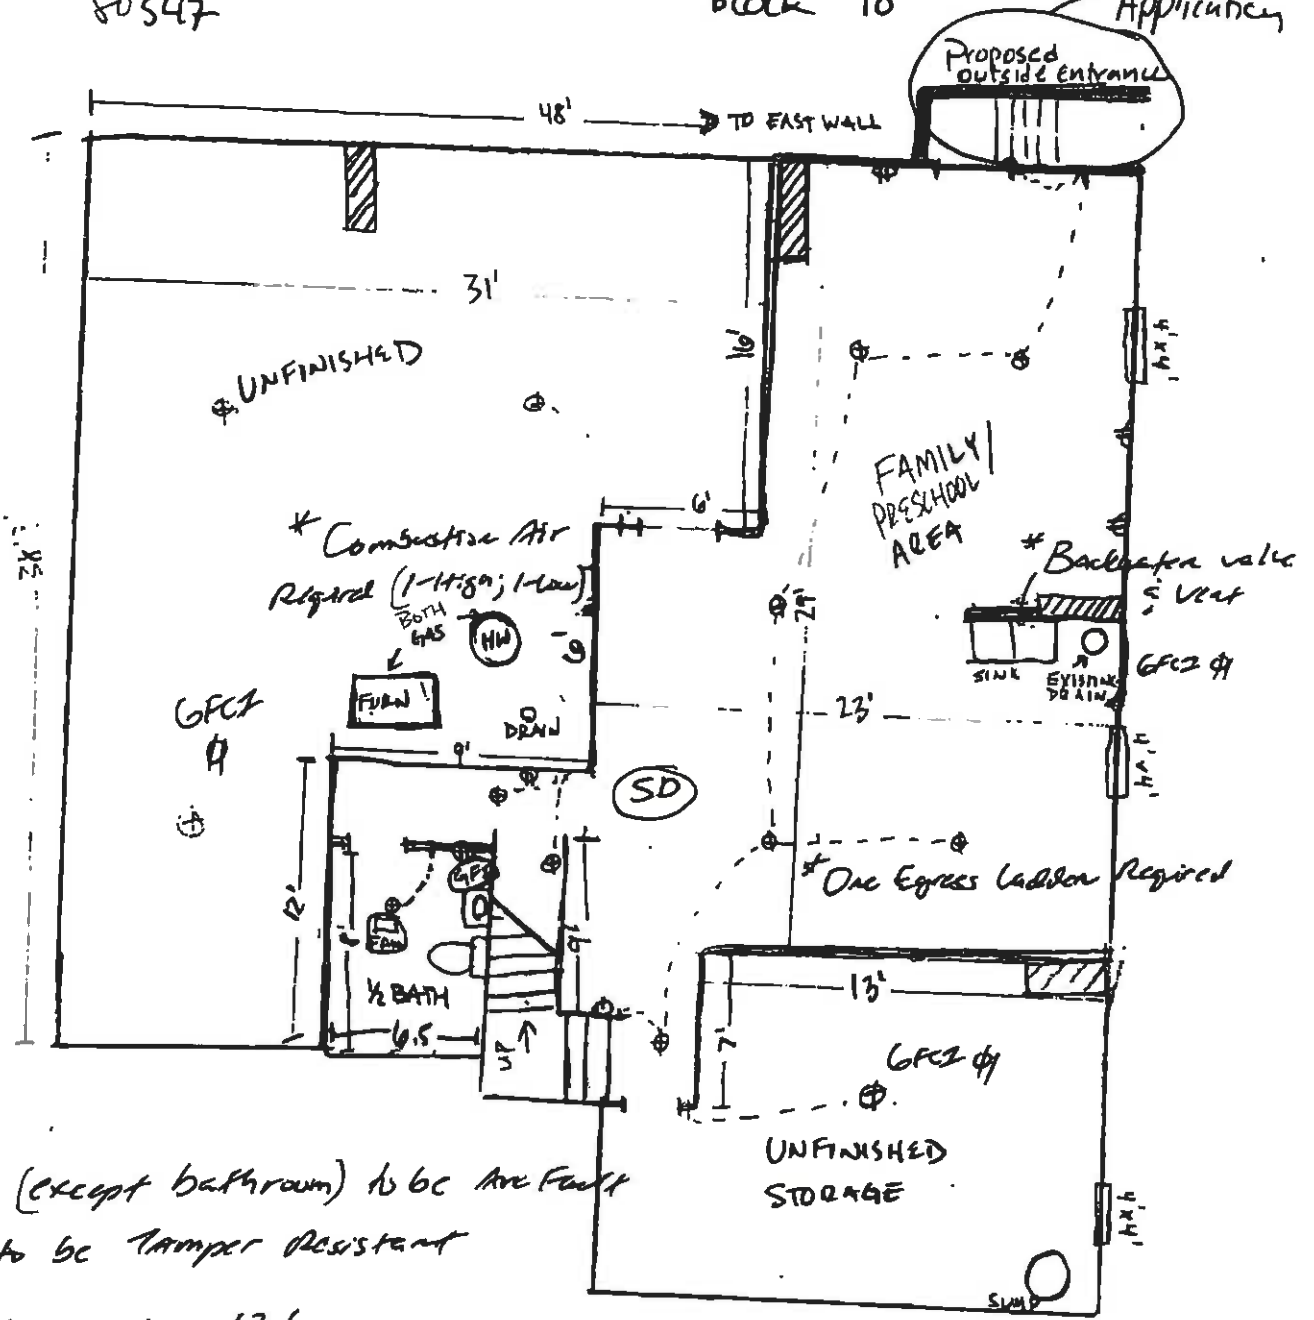 80547
Block 10
Proposed
outside entrance
48'
TO EAST WALL
31'
16'
UNFINISHED
4'x4'
FAMILY/
PRESCHOOL
AREA
6'
* Combustion Air
Required (1-High; 1-Low)
BOTH
GAS
HW
* Backwater valve
& Vent
SINK
EXISTING
DRAIN
GFCI
29'
FURN
GFCI
DRAIN
9'
23'
4'x4'
SD
* One Egress Ladder Required
12'
GFI
FAN
9'
1/2 BATH
6.5
UP
13'
7'
GFCI
UNFINISHED
STORAGE
4'x4'
SUMP
(except bathroom) to be Arc Fault
to be Tamper Resistant